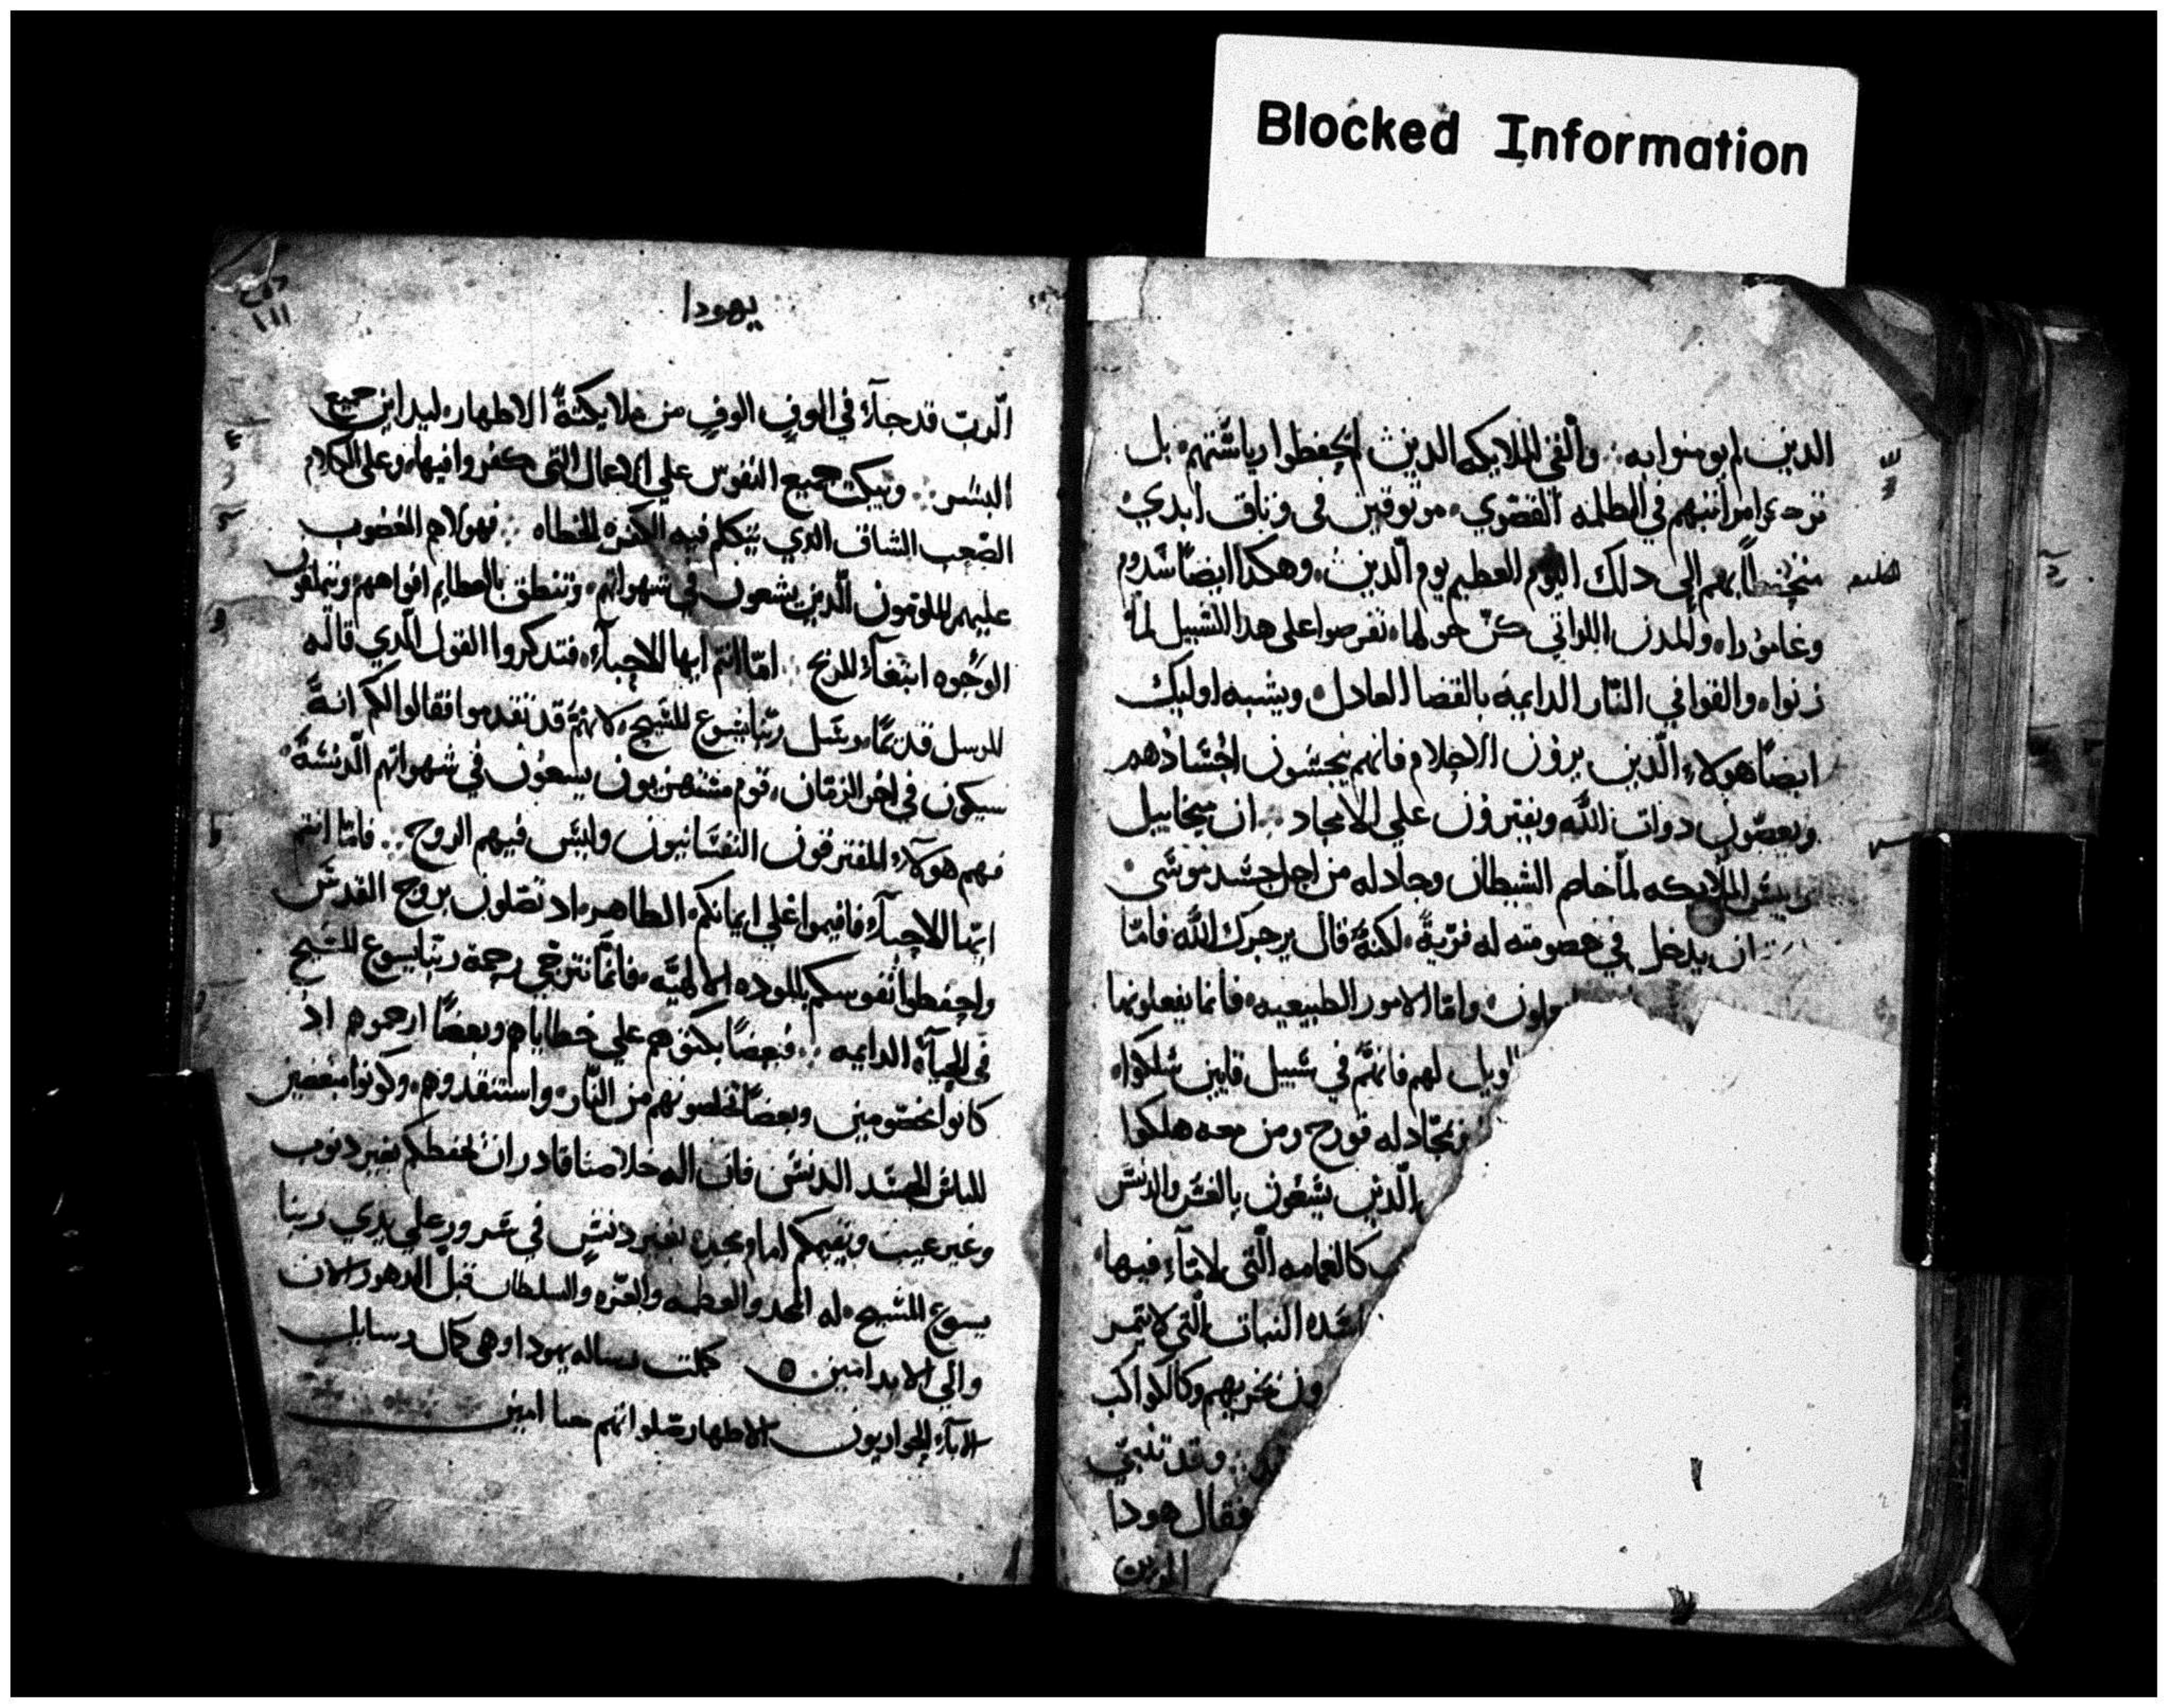 Blocked Information
الدين لم يومنوا به ∴ وألقى الملايكه الدين لم يحفظوا رياستهم بل
مراتبهم في الظلمه القصوي موتوقين في وتاق ابدي
بهم إلى دلك اليوم العظيم يوم الدين وهكدا ايضًا سدوم
وعامورا والمدن اللواتي كنّ حولها تعرضوا على هدا السبيل لمّا
زنوا والقوا في النّار الدايمه بالقضا العادل ويشبه اوليك
ايضًا هولاء الّدين يرون الاحلام فانهم ينجسون اجسادهم
ويعصون دوات الله ويفترون على الامجاد ∴ ان ميخاييل
رييس الملايكه لمّا خاصم الشيطان وجادله من اجل جسد موسى
ان يدخل في خصومته له فريةً لكنهُ قال يزجرك الله فامّا
وامّا الامور الطبيعيه فانما يفعلونها
الويل لهم فانهم في سبيل قايين سلكوا
قورح ومن معه هلكوا
الّدين يسعون بالغش والدنس
كالغمامه الّتي لا ماء فيها
النبات الّتي لا تتمر
وكالكواكب
وقد تنبي
فقال هودا
يهودا
١١١
الّرب قد جاء في الوفٍ الوفٍ من ملايكتهُ الاطهار ليداين جميع
البشر ∴ ويبكت جميع النفوس على الاعمال التي كفروا فيها وعلى الكلام
الصّعب الشاق الدي يتكلم فيه الكفره الخطاه ∴ فهولاء هم الغضوب
عليهم الملومون الّدين يسعون في شهواتهم وتنطق بالعظايم افواههم ويتملقون
الوجُوه ابتغآء للربح ∴ امّا انتم ايها الاحباء فتدكروا القول الّدي قاله
الرسل قديمًا رسل ربّنا يسوع المسيح لانهمُ قد تقدموا فقالوا لكم انهُ
سيكون في اخر الزمان قوم مستهزيون يسعون في شهواتهم الّدنسهُ
فهم هولاء المفترقون النفسانيون وليس فيهم الروح ∴ فامّا انتم
ايها الاحباء فاقيموا على ايمانكم الطاهر اد تصلون بروح القدس
واحفظوا نفوسكم بالموده الالهيّه فانمّا نترجّي رحمة ربّنا يسوع المسيح
في الحياة الدايمه ∴ فبعضًا بكتوهم على خطاياهم وبعضًا ارحموهم اد
كانوا مخصومين وبعضًا تخلصونهم من النّار واستنقدوهم وكونوا مبغضين
للباس الجسد الدنس فان اله خلاصنا قادر ان يحفظكم بغير دنوب
وغير عيب ويقيمكم امام مجده بغير دنسٍ في سرورٍ على يدي ربنا
يسوع المسيح له المجد والعظمه والعزّه والسلطان قبل الدهور الان
والى الابد امين كملت رساله يهودا وهي كمال رسايل
الاباء الحواريون الاطهار صلواتهم معنا امين